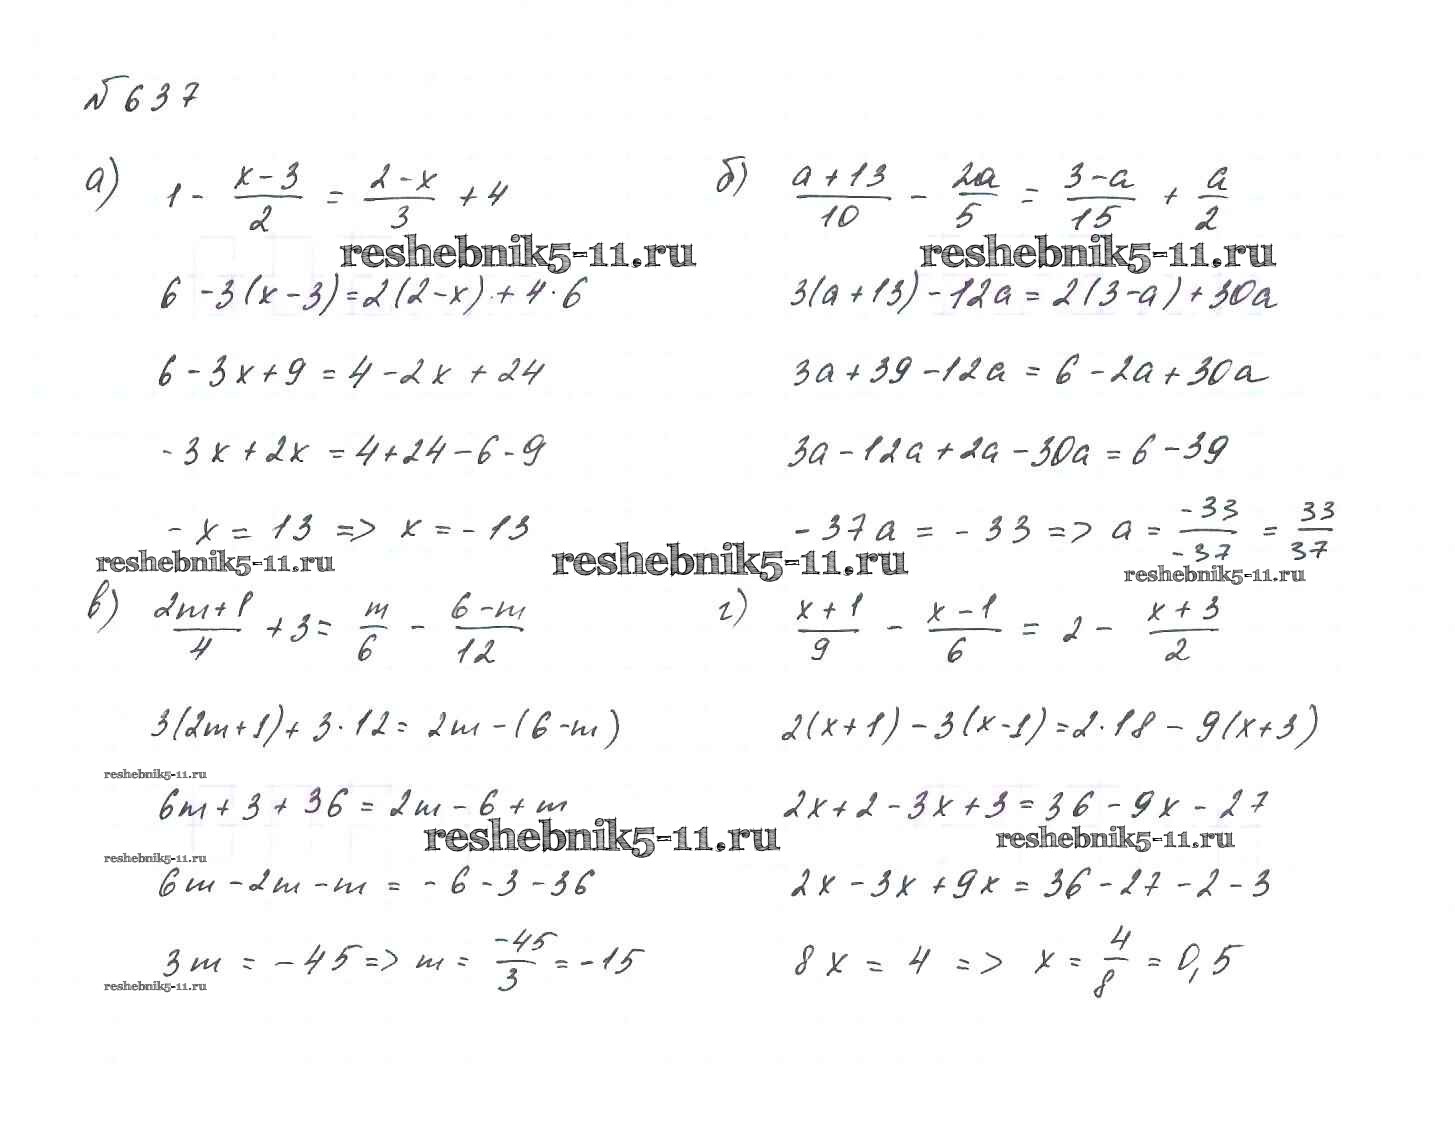 №637
а) 1 - (x-3)/2 = (2-x)/3 + 4
reshebnik5-11.ru
6 - 3(x-3) = 2(2-x) + 4·6
6 - 3x + 9 = 4 - 2x + 24
-3x + 2x = 4 + 24 - 6 - 9
-x = 13 => x = -13
reshebnik5-11.ru
б) (a+13)/10 - 2a/5 = (3-a)/15 + a/2
reshebnik5-11.ru
3(a+13) - 12a = 2(3-a) + 30a
3a + 39 - 12a = 6 - 2a + 30a
3a - 12a + 2a - 30a = 6 - 39
-37a = -33 => a = -33/-37 = 33/37
reshebnik5-11.ru
reshebnik5-11.ru
в) (2m+1)/4 + 3 = m/6 - (6-m)/12
3(2m+1) + 3·12 = 2m - (6-m)
reshebnik5-11.ru
6m + 3 + 36 = 2m - 6 + m
reshebnik5-11.ru
reshebnik5-11.ru
6m - 2m - m = -6 - 3 - 36
3m = -45 => m = -45/3 = -15
reshebnik5-11.ru
г) (x+1)/9 - (x-1)/6 = 2 - (x+3)/2
2(x+1) - 3(x-1) = 2·18 - 9(x+3)
2x + 2 - 3x + 3 = 36 - 9x - 27
reshebnik5-11.ru
2x - 3x + 9x = 36 - 27 - 2 - 3
8x = 4 => x = 4/8 = 0,5